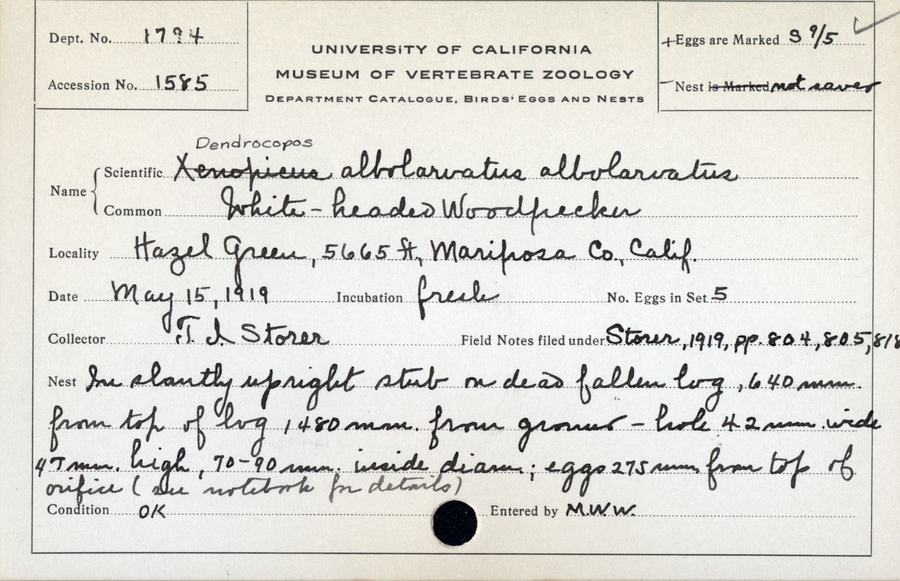 Dept. No. 1794
Accession No. 1585
UNIVERSITY OF CALIFORNIA
MUSEUM OF VERTEBRATE ZOOLOGY
DEPARTMENT CATALOGUE, BIRDS' EGGS AND NESTS
+Eggs are Marked S 9/5 ✓
-Nest is Marked not saved
Dendrocopos
Name { Scientific Xenopicus albolarvatus albolarvatus
Common White-headed Woodpecker
Locality Hazel Green, 5665 ft, Mariposa Co., Calif.
Date May 15, 1919 Incubation fresh No. Eggs in Set 5
Collector T. I. Storer Field Notes filed under Storer, 1919, pp. 804, 805, 818
Nest In slantly upright stub on dead fallen log, 640 mm.
from top of log 1,480 mm. from ground - hole 42 mm. wide
47 mm. high, 70-90 mm. inside diam; eggs 275 mm from top of
orifice (see notebook for details)
Condition OK Entered by M.W.W.